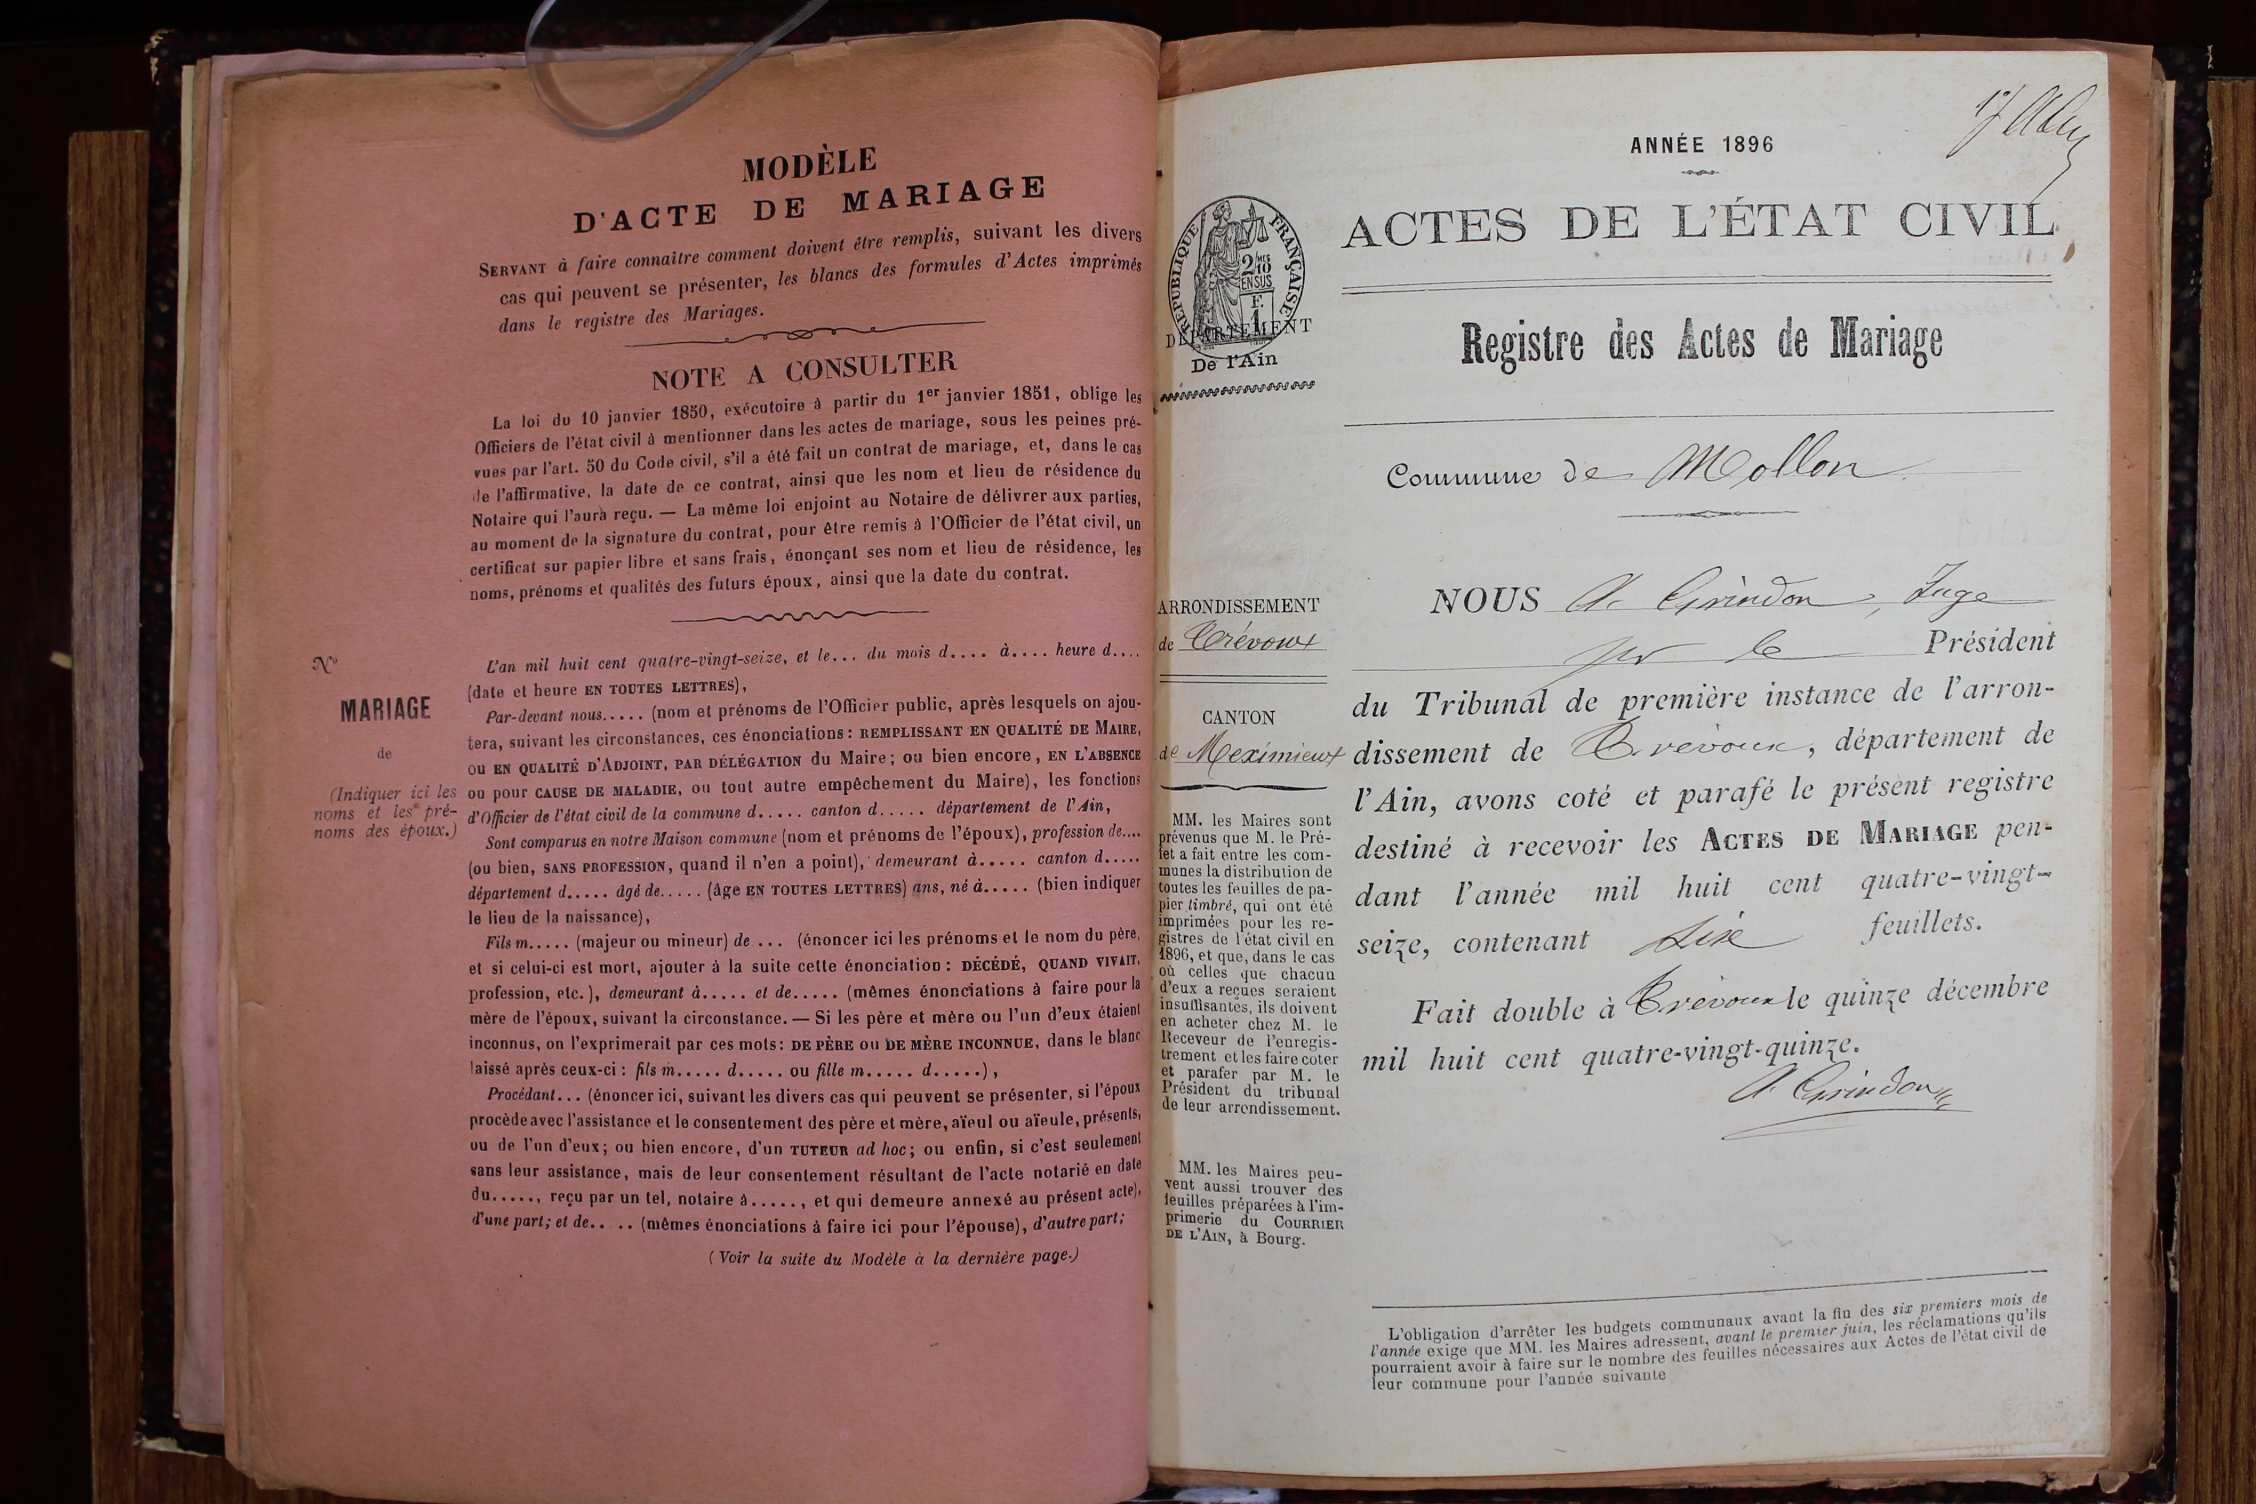 MODÈLE
D'ACTE DE MARIAGE
SERVANT à faire connaître comment doivent être remplis, suivant les divers
cas qui peuvent se présenter, les blancs des formules d'Actes imprimés
dans le registre des Mariages.
NOTE A CONSULTER
La loi du 10 janvier 1850, exécutoire à partir du 1er janvier 1851, oblige les
Officiers de l'état civil à mentionner dans les actes de mariage, sous les peines pré-
vues par l'art. 50 du Code civil, s'il a été fait un contrat de mariage, et, dans le cas
de l'affirmative, la date de ce contrat, ainsi que les nom et lieu de résidence du
Notaire qui l'aura reçu. — La même loi enjoint au Notaire de délivrer aux parties,
au moment de la signature du contrat, pour être remis à l'Officier de l'état civil, un
certificat sur papier libre et sans frais, énonçant ses nom et lieu de résidence, les
noms, prénoms et qualités des futurs époux, ainsi que la date du contrat.
N°
MARIAGE
de
(Indiquer ici les
noms et les pré-
noms des époux.)
L'an mil huit cent quatre-vingt-seize, et le... du mois d.... à.... heure d....
(date et heure EN TOUTES LETTRES),
Par-devant nous..... (nom et prénoms de l'Officier public, après lesquels on ajou-
tera, suivant les circonstances, ces énonciations: REMPLISSANT EN QUALITÉ DE MAIRE,
ou EN QUALITÉ D'ADJOINT, PAR DÉLÉGATION du Maire; ou bien encore, EN L'ABSENCE
ou pour CAUSE DE MALADIE, ou tout autre empêchement du Maire), les fonctions
d'Officier de l'état civil de la commune d..... canton d..... département de l'Ain,
Sont comparus en notre Maison commune (nom et prénoms de l'époux), profession de....
(ou bien, SANS PROFESSION, quand il n'en a point), demeurant à..... canton d.....
département d..... âgé de..... (âge EN TOUTES LETTRES) ans, né à..... (bien indiquer
le lieu de la naissance),
Fils m..... (majeur ou mineur) de ... (énoncer ici les prénoms et le nom du père,
et si celui-ci est mort, ajouter à la suite cette énonciation: DÉCÉDÉ, QUAND VIVAIT,
profession, etc.), demeurant à..... et de..... (mêmes énonciations à faire pour la
mère de l'époux, suivant la circonstance. — Si les père et mère ou l'un d'eux étaient
inconnus, on l'exprimerait par ces mots: DE PÈRE ou DE MÈRE INCONNUE, dans le blanc
laissé après ceux-ci: fils m..... d..... ou fille m..... d.....),
Procédant... (énoncer ici, suivant les divers cas qui peuvent se présenter, si l'époux
procède avec l'assistance et le consentement des père et mère, aïeul ou aïeule, présents,
ou de l'un d'eux; ou bien encore, d'un TUTEUR ad hoc; ou enfin, si c'est seulement
sans leur assistance, mais de leur consentement résultant de l'acte notarié en date
du....., reçu par un tel, notaire à....., et qui demeure annexé au présent acte),
d'une part; et de..... (mêmes énonciations à faire ici pour l'épouse), d'autre part;
(Voir la suite du Modèle à la dernière page.)
ANNÉE 1896
ACTES DE L'ÉTAT CIVIL
RÉPUBLIQUE FRANÇAISE
2/10 EN SUS
F.
1
DÉPARTEMENT
De l'Ain
Registre des Actes de Mariage
Commune de Mollon
ARRONDISSEMENT
de Trévoux
CANTON
de Meximieux
MM. les Maires sont
prévenus que M. le Pré-
fet a fait entre les com-
munes la distribution de
toutes les feuilles de pa-
pier timbré, qui ont été
imprimées pour les re-
gistres de l'état civil en
1896, et que, dans le cas
où celles que chacun
d'eux a reçues seraient
insuffisantes, ils doivent
en acheter chez M. le
Receveur de l'enregis-
trement et les faire coter
et parafer par M. le
Président du tribunal
de leur arrondissement.
MM. les Maires peu-
vent aussi trouver des
feuilles préparées à l'im-
primerie du COURRIER
DE L'AIN, à Bourg.
NOUS A. Grindon, Juge
pr le Président
du Tribunal de première instance de l'arron-
dissement de Trévoux, département de
l'Ain, avons coté et parafé le présent registre
destiné à recevoir les ACTES DE MARIAGE pen-
dant l'année mil huit cent quatre-vingt-
seize, contenant six feuillets.
Fait double à Trévoux le quinze décembre
mil huit cent quatre-vingt-quinze.
A. Grindon
L'obligation d'arrêter les budgets communaux avant la fin des six premiers mois de
l'année exige que MM. les Maires adressent, avant le premier juin, les réclamations qu'ils
pourraient avoir à faire sur le nombre des feuilles nécessaires aux Actes de l'état civil de
leur commune pour l'année suivante